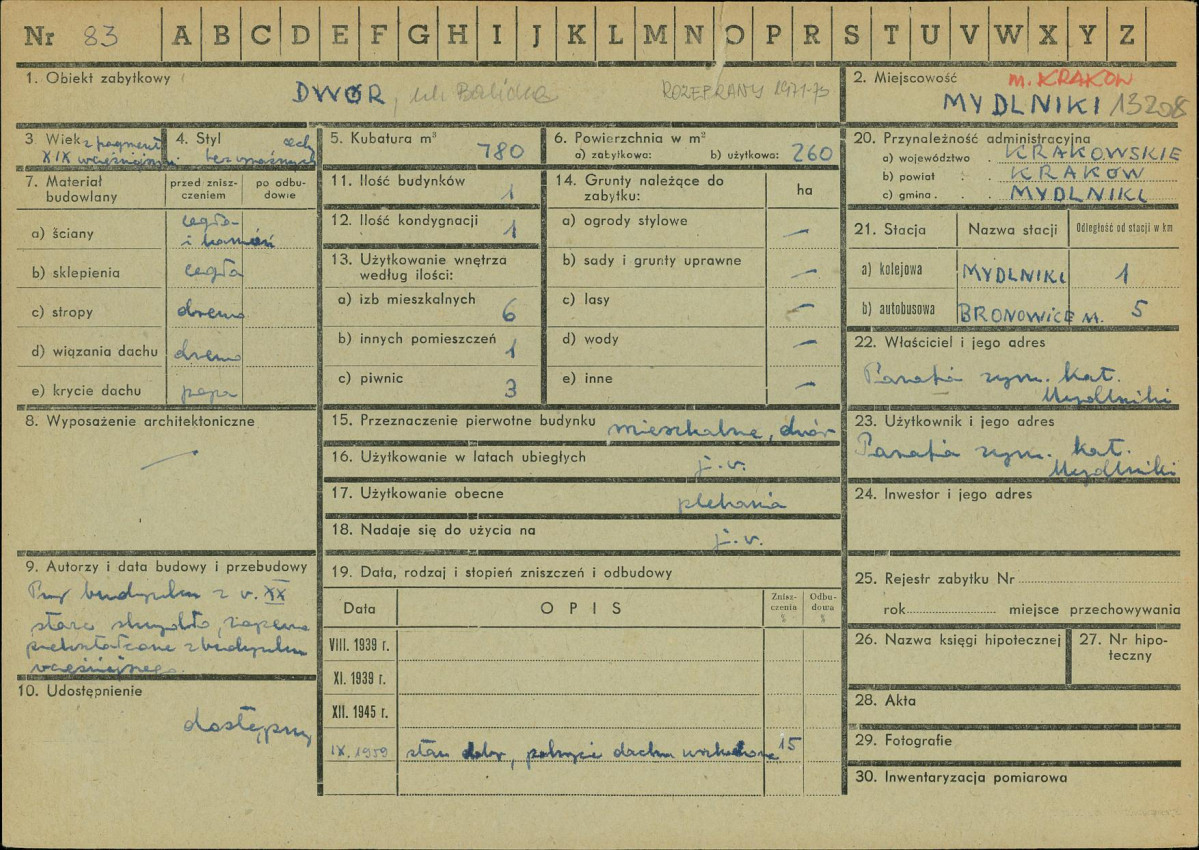 Nr 83 A B C D E F G H I J K L M N O P R S T U V W X Y Z
1. Obiekt zabytkowy
DWÓR, ul. Balicka ROZEBRANY 1971-73
2. Miejscowość m. KRAKÓW
MYDLNIKI 13208
3 Wiek z fragment.
XIX wcześniejszymi
4. Styl cech
bez wyraźnych
5. Kubatura m³
780
6. Powierzchnia w m²
a) zabytkowa: b) użytkowa: 260
7. Materiał budowlany
przed zniszczeniem
po odbudowie
a) ściany cegła
i kamień
b) sklepienia cegła
c) stropy drewno
d) wiązania dachu drewno
e) krycie dachu papa
8. Wyposażenie architektoniczne
—
9. Autorzy i data budowy i przebudowy
Przy budynku z w. XX
stare skrzydło, zapewne
przekształcone z budynku
wcześniejszego.
10. Udostępnienie
dostępny
11. Ilość budynków 1
12. Ilość kondygnacji 1
13. Użytkowanie wnętrza
według ilości:
a) izb mieszkalnych 6
b) innych pomieszczeń 1
c) piwnic 3
14. Grunty należące do
zabytku:
ha
a) ogrody stylowe —
b) sady i grunty uprawne —
c) lasy —
d) wody —
e) inne —
15. Przeznaczenie pierwotne budynku mieszkalne, dwór
16. Użytkowanie w latach ubiegłych j.w.
17. Użytkowanie obecne plebania
18. Nadaje się do użycia na j.w.
19. Data, rodzaj i stopień zniszczeń i odbudowy
Data OPIS Zniszczenia % Odbudowa %
VIII. 1939 r.
XI. 1939 r.
XII. 1945 r.
IX. 1959 stan dobry, pokrycie dachu uszkodzone 15
20. Przynależność administracyjna
a) województwo KRAKOWSKIE
b) powiat KRAKÓW
c) gmina MYDLNIKI
21. Stacja Nazwa stacji Odległość od stacji w km
a) kolejowa MYDLNIKI 1
b) autobusowa BRONOWICE M. 5
22. Właściciel i jego adres
Parafia rzym. kat.
Mydlniki
23. Użytkownik i jego adres
Parafia rzym. kat.
Mydlniki
24. Inwestor i jego adres
25. Rejestr zabytku Nr
rok miejsce przechowywania
26. Nazwa księgi hipotecznej
27. Nr hipoteczny
28. Akta
29. Fotografie
30. Inwentaryzacja pomiarowa